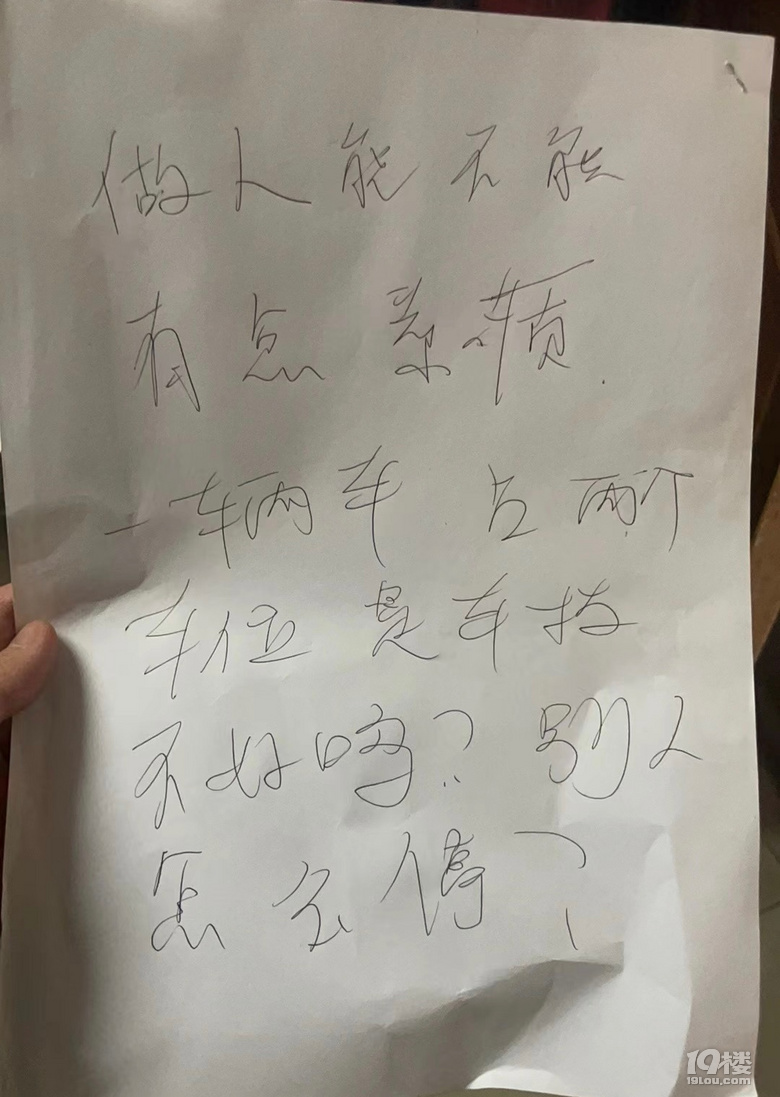 做人能不能
有点素质.
一辆车 占两个
车位 是车技
不好吗? 别人
怎么停?
19楼
19lou.com